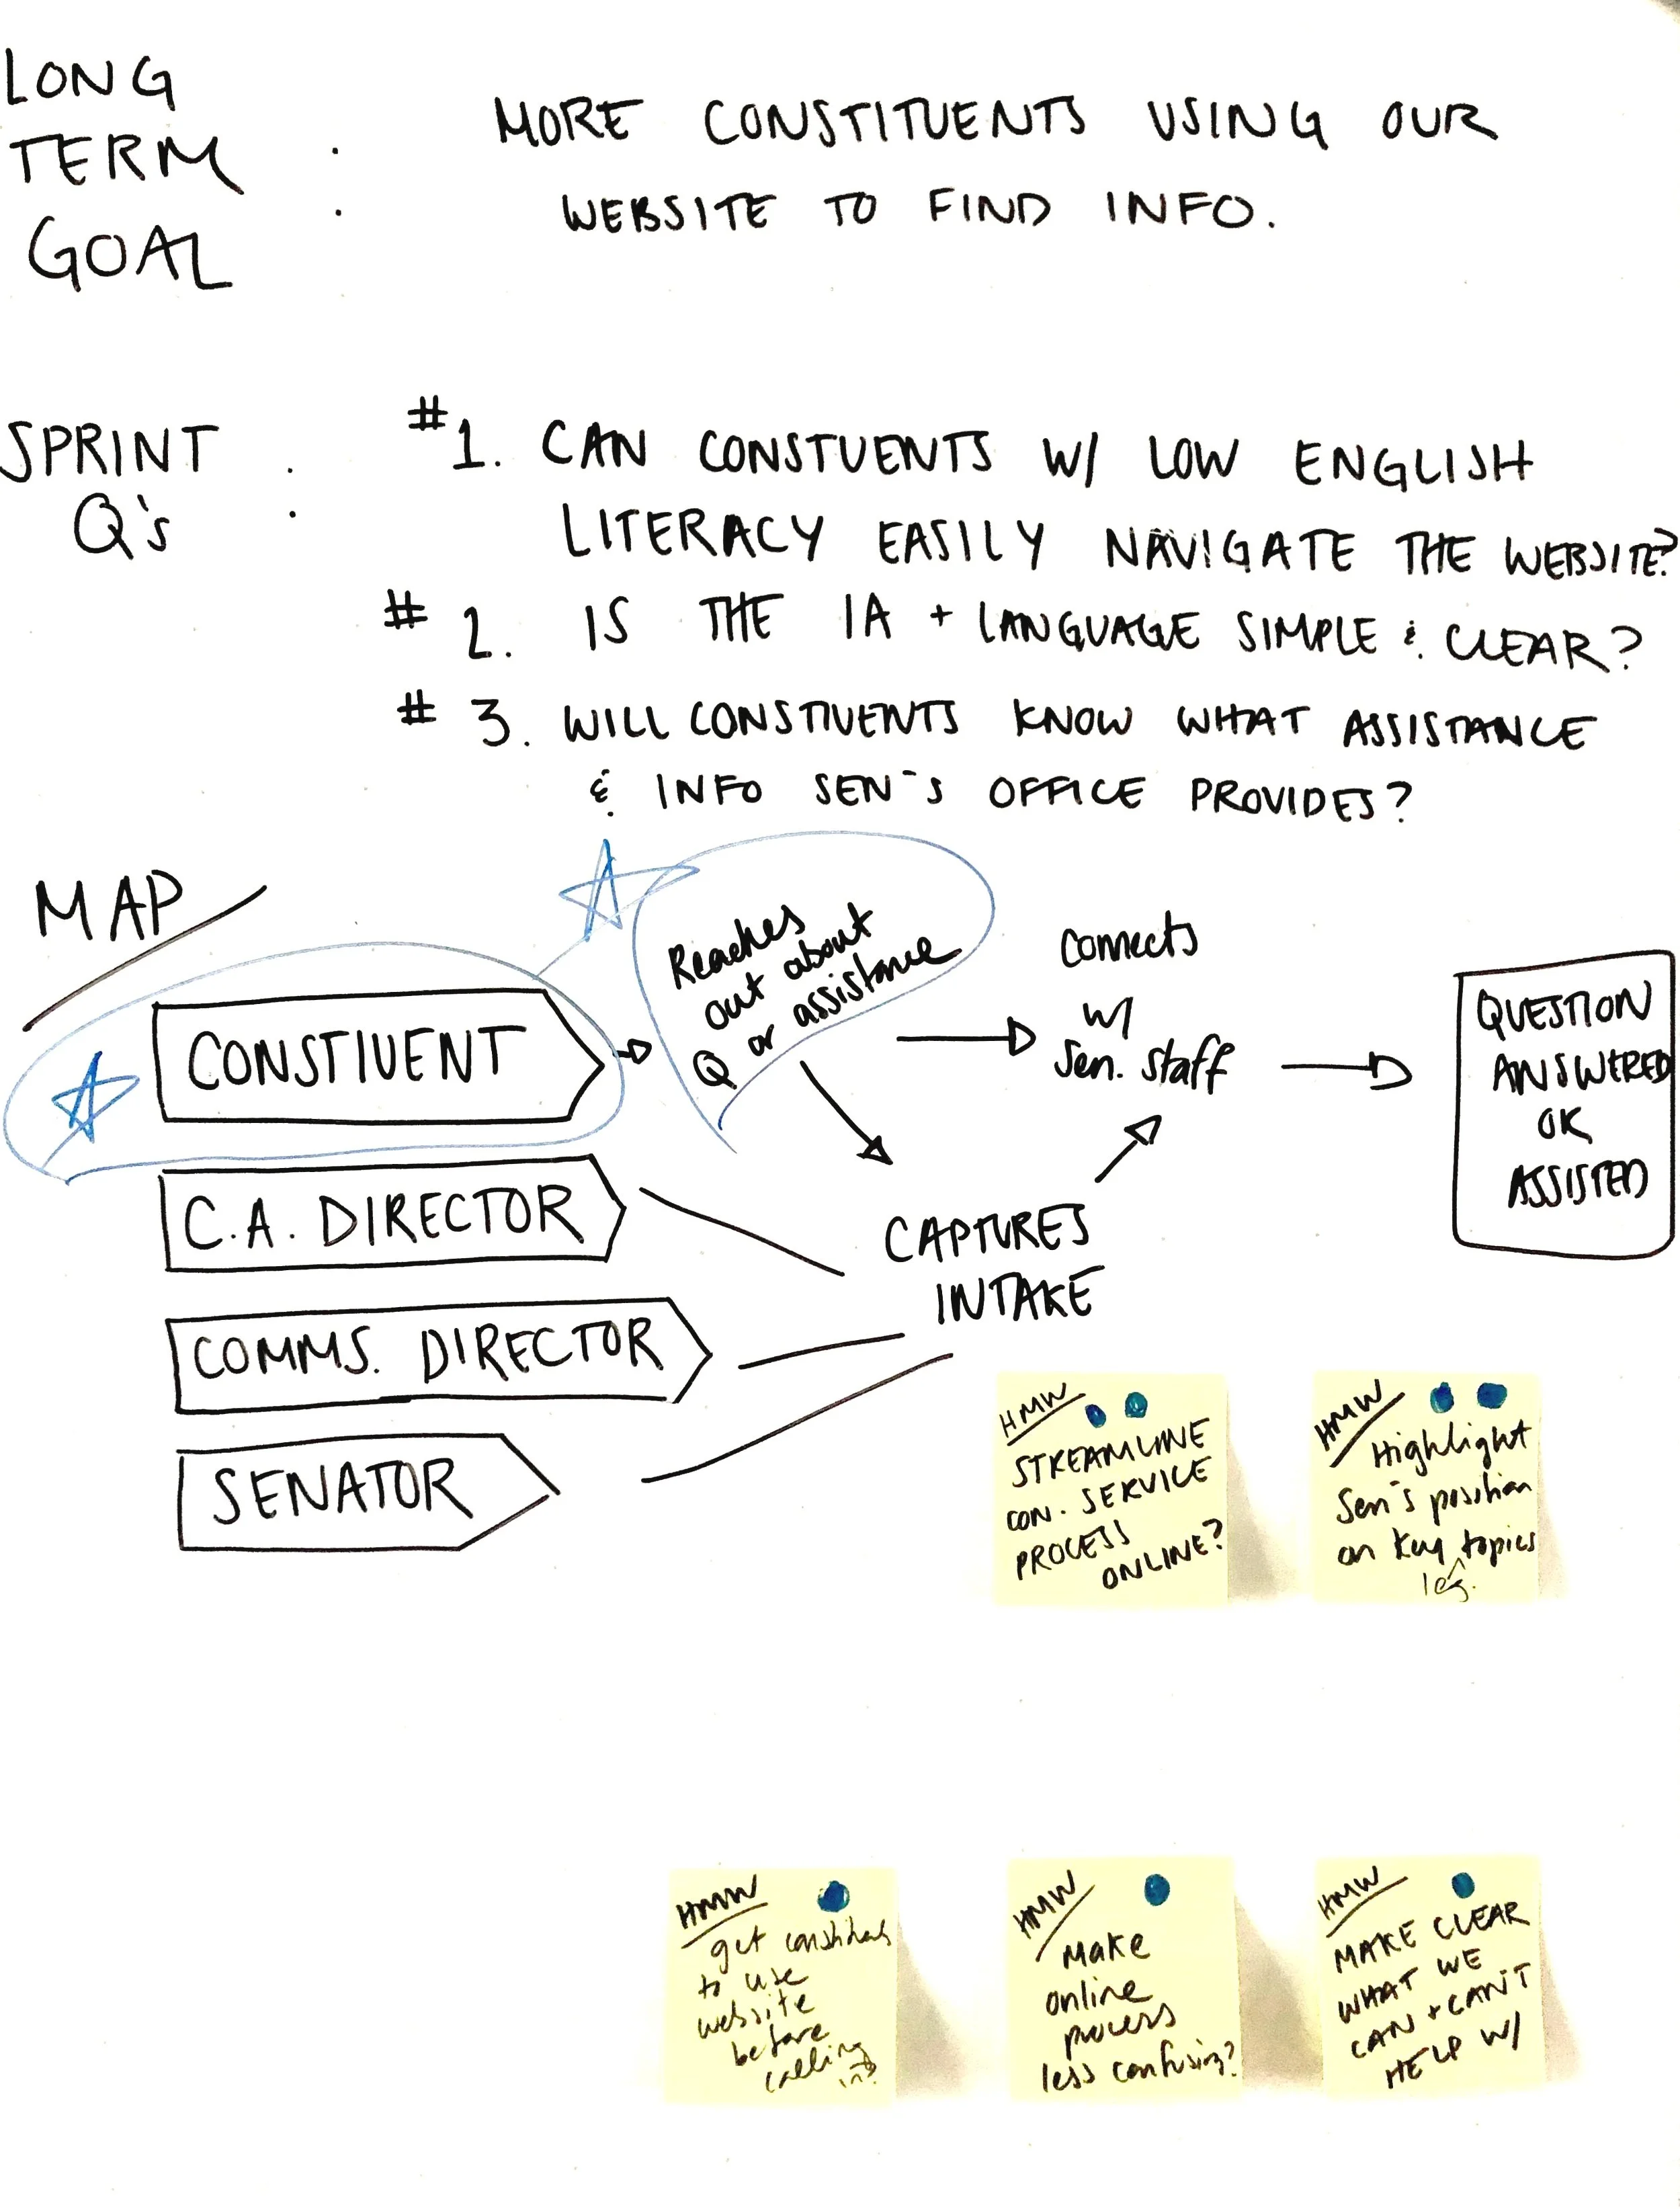 LONG
TERM :
GOAL
MORE CONSTITUENTS USING OUR
WEBSITE TO FIND INFO.
SPRINT :
Q's
#1. CAN CONSTUENTS W/ LOW ENGLISH
LITERACY EASILY NAVIGATE THE WEBSITE?
#2. IS THE IA + LANGUAGE SIMPLE & CLEAR?
#3. WILL CONSTIUENTS KNOW WHAT ASSISTANCE
& INFO SEN'S OFFICE PROVIDES?
MAP
CONSTIUENT
Reaches
out about
Q or assistance
Connects
w/
Sen. Staff
QUESTION
ANSWERED
OR
ASSISTED
C.A. DIRECTOR
CAPTURES
INTAKE
COMMS. DIRECTOR
SENATOR
HMW
STREAMLINE
CON. SERVICE
PROCESS
ONLINE?
HMW
Highlight
Sen's position
on key topics
leg.
HMW
get
to use
website
before
calling
in?
HMW
Make
online
process
less confusing?
HMW
MAKE CLEAR
WHAT WE
CAN + CAN'T
HELP W/